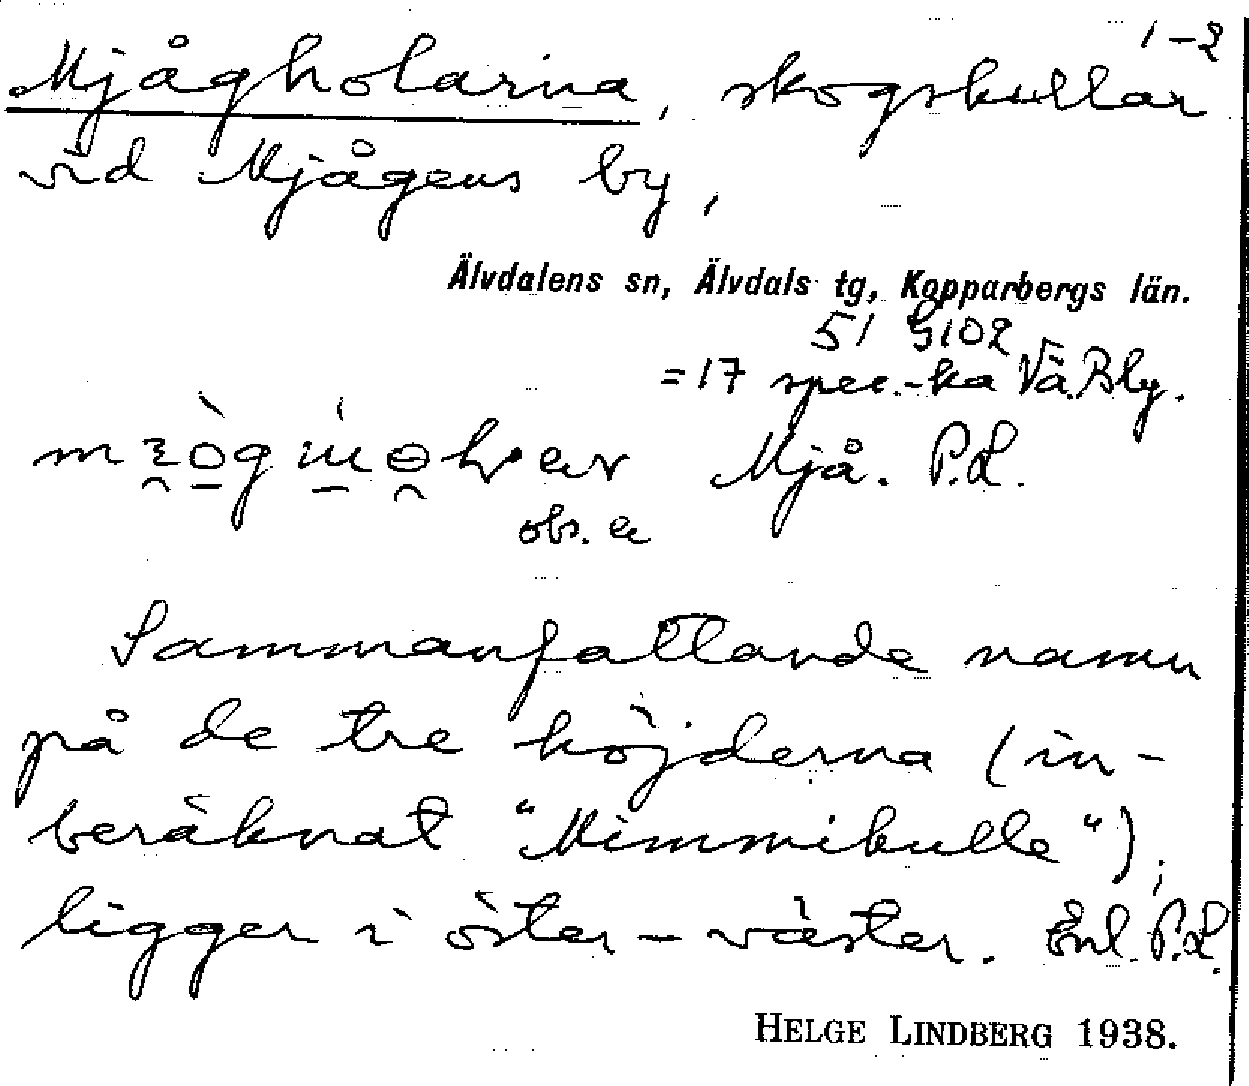 1-2
Mjågholarna, skogskullar
vid Mjågens by,
Älvdalens sn, Älvdals tg, Kopparbergs län.
51 5102
=17 spec.-ka Vä.Bly.
Mjå. P.L.
obs.
Sammanfattande namn
på de tre höjderna (in-
beräknat "Mimmikulle"),
ligger i öster-väster. Enl. P.L.
HELGE LINDBERG 1938.